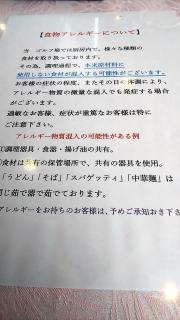 【食物アレルギーについて】
当 ゴルフ場では厨房内で、様々な種類の
食材を取り扱っております。
その為、調理過程で、本来原材料に
使用しない食材が混入する可能性がございます。
お客様の症状の程度、またその日の体調により、
アレルギー物質の微量な混入でも発症する場合
がございます。
過敏なお客様、症状が重篤なお客様は特に
ご注意下さい。
アレルギー物質混入の可能性がある例
①調理器具・食器・揚げ油の共有。
②食材は共有の保管場所で、共有の器具を使用。
「うどん」「そば」「スパゲッティ」「中華麺」は
同じ茹で器で茹でております。
アレルギーをお持ちのお客様は、予めご承知おき下さ